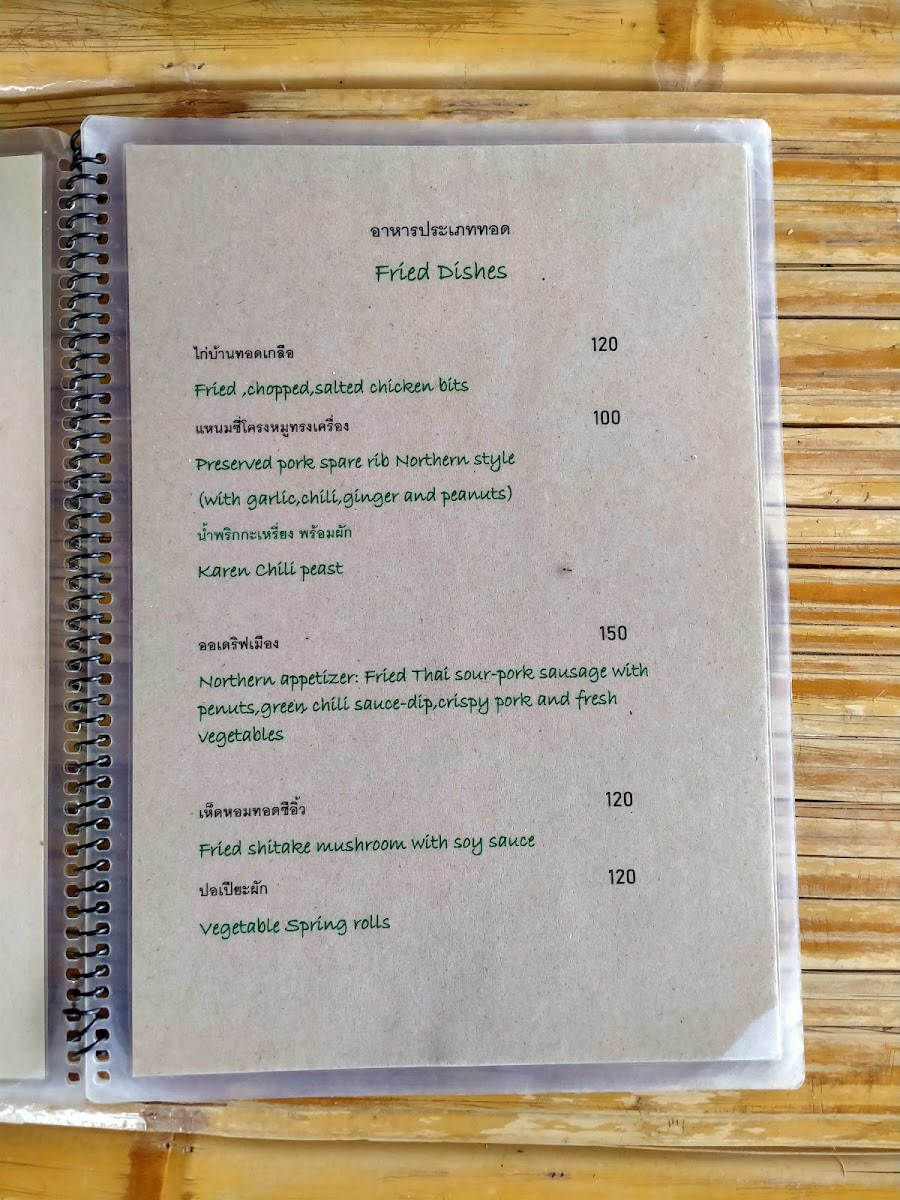 อาหารประเภททอด
Fried Dishes
ไก่บ้านทอดเกลือ 120
Fried ,chopped,salted chicken bits
แหนมซี่โครงหมูทรงเครื่อง 100
Preserved pork spare rib Northern style
(with garlic,chili,ginger and peanuts)
น้ำพริกกะเหรี่ยง พร้อมผัก
Karen Chili peast
ออเดริฟเมือง 150
Northern appetizer: Fried Thai sour-pork sausage with
penuts,green chili sauce-dip,crispy pork and fresh
vegetables
เห็ดหอมทอดซีอิ้ว 120
Fried shitake mushroom with soy sauce
ปอเปียะผัก 120
Vegetable Spring rolls